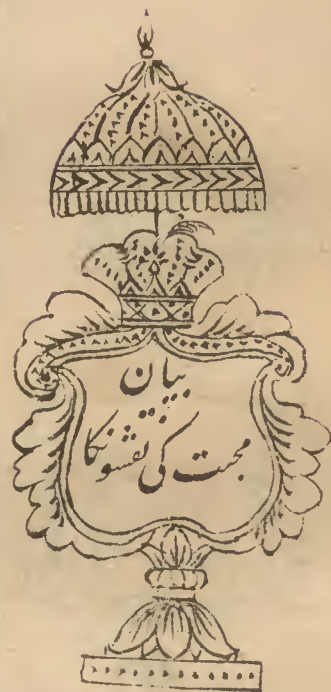 بیان
محبت کی نقشونکا